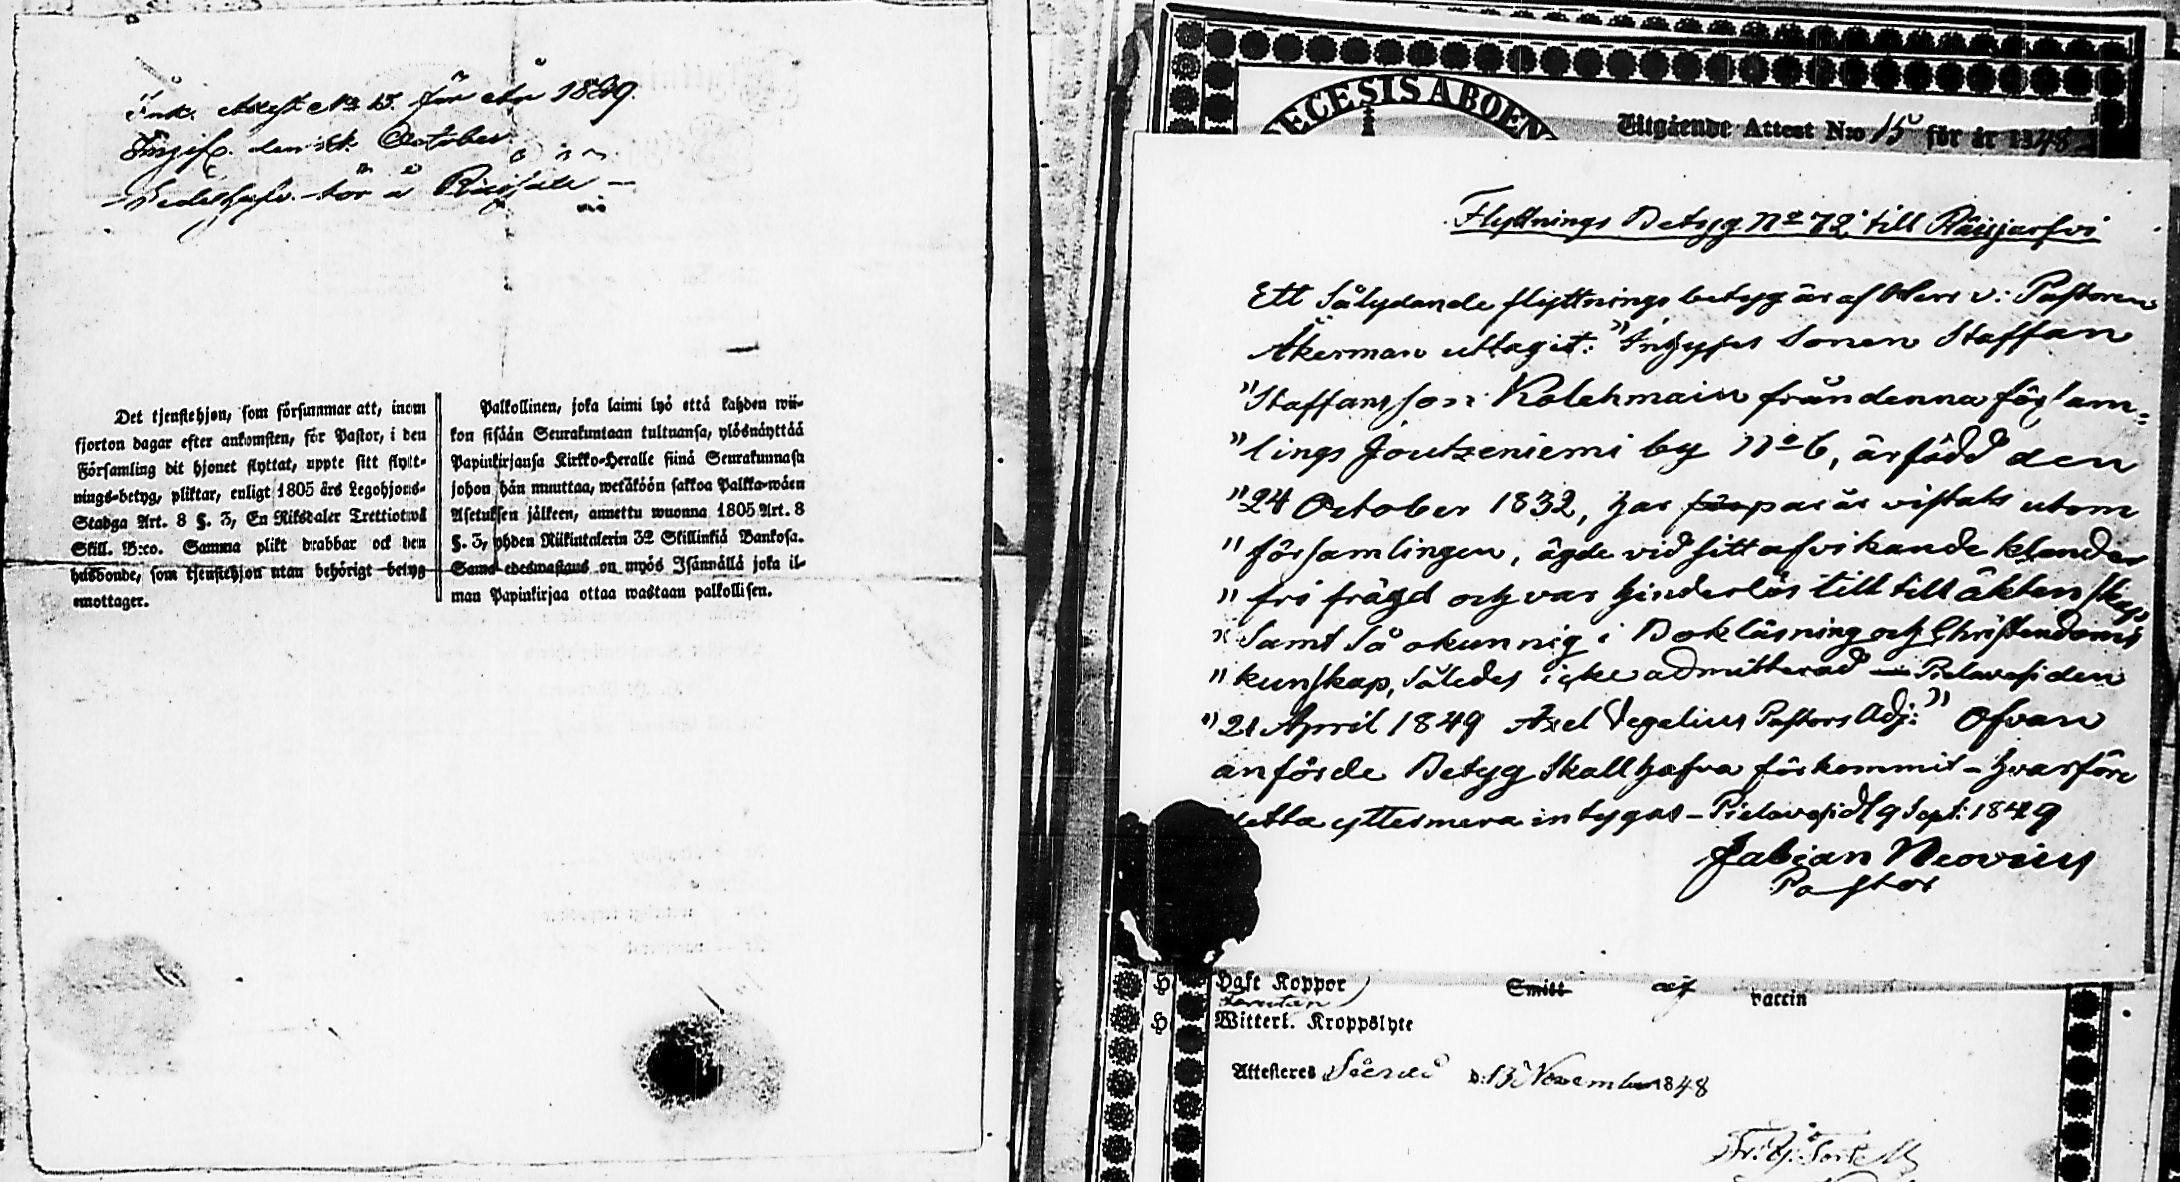 Ink. Attest No 15. för år 1849.
den October
Det tjenstehjon, som försummar att, inom
fjorton dagar efter ankomsten, för Pastor, i den
Församling dit hjonet flyttat, uppte sitt flytt-
nings-betyg, pliktar, enligt 1805 års Legohjons-
Stadga Art. 8 §. 3, En Riksdaler Trettiotwå
Skill. B:co. Samma plikt drabbar ock den
husbonde, som tjenstehjon utan behörigt betyg
emottager.
Palkollinen, joka laimi lyö että kahden wii-
kon sisään Seurakuntaan tultuansa, ylösnäyttää
Papinkirjansa Kirkko-Heralle siinä Seurakunnasa
johon hän muuttaa, wetäköön sakkoa Palkka-wäen
Asetuksen jälkeen, annettu wuonna 1805 Art. 8
§. 3, yhden Riikintalerin 32 Skillinkiä Bankosa.
Sama edeswastaus on myös Isännällä joka il-
man Papinkirjaa ottaa wastaan palkollisen.
ECESIS ABOEN
Utgående Attest N:o 15 för år 1848
Flyttnings Betyg No 72 till Räisjärfvi
Ett Sålydande flyttnings betyg är af Herr v: Pastoren
Åkerman uttagit: "Inhyses Sonen Staffan
"Staffansson Kolehmain från denna försam=
"lings Joutzeniemi by No 6, är född den
"24 October 1832, har par år vistats utom
"församlingen, ägde vid sitt afvikande klander
"fri frägd och var hinderlös till till äktenskap
"Samt Så okunnig i Bokläsning och Christendoms
"kunskap, Således icke admitterad Pielavesi den
"21 April 1849 Axel Vegelius Pastors Adj:" Ofvan
anförde Betyg Skall hafva förkommit - hvarföre
detta yttermera intygas - Pielavesi d 9 Sept: 1849
Fabian Neovius
Pastor
Haft Koppor Smitt af vaccin
Witterl. Kroppslyte
Attesteres d: 13 November 1848